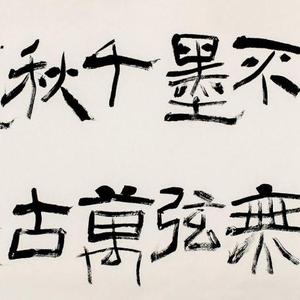 不墨千秋
無弦萬古